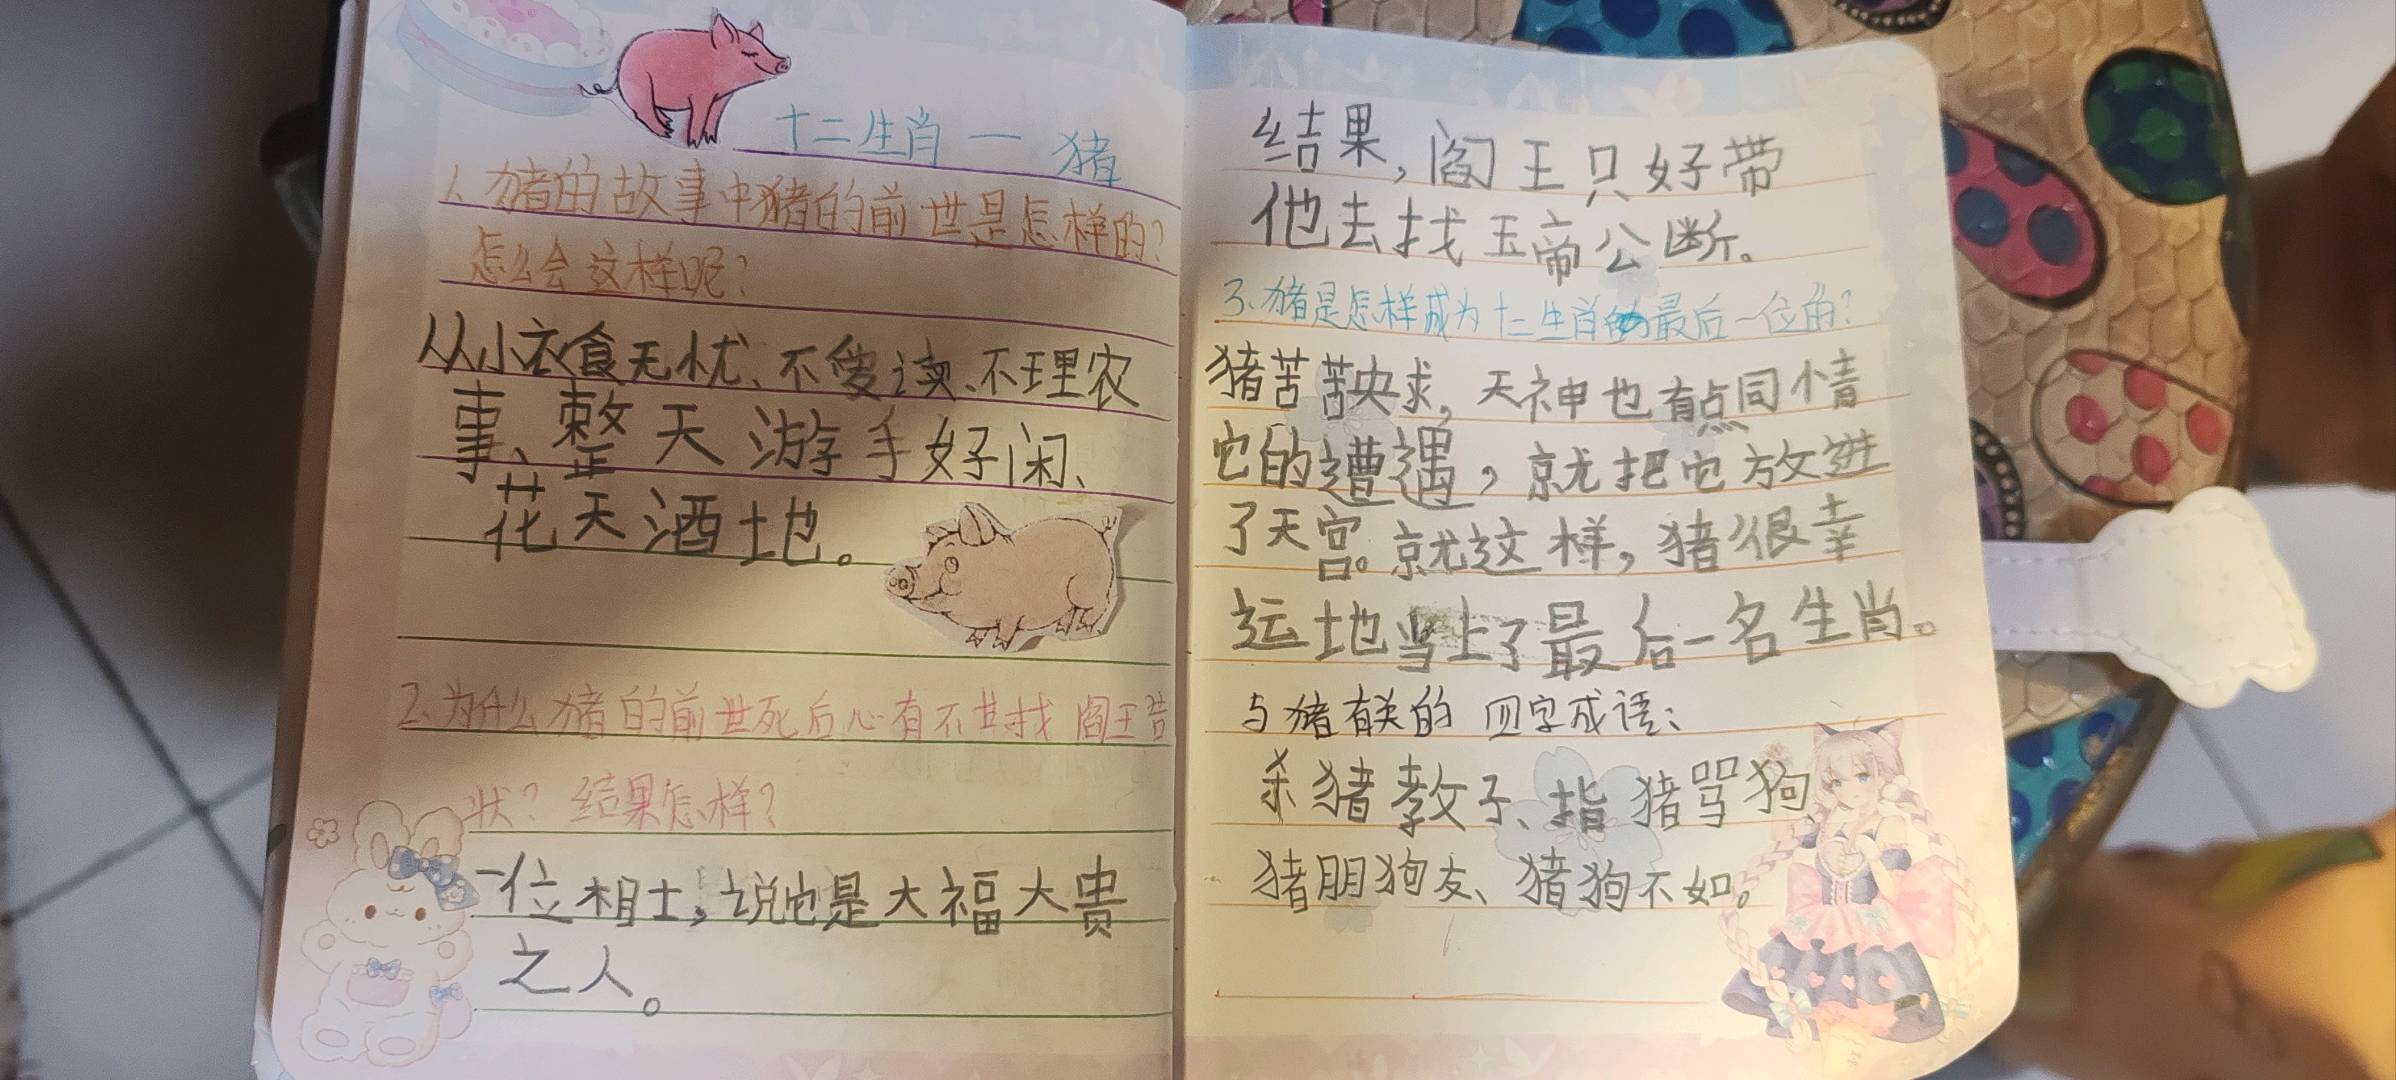 十二生肖一猪
1、猪的故事中猪的前世是怎样的?
怎么会这样呢?
从小衣食无忧、不爱读、不理农
事、整天游手好闲、
花天酒地。
2、为什么猪的前世死后心有不甘找阎王告
状?结果怎样?
一位相士,说他是大福大贵
之人。
结果,阎王只好带
他去找玉帝公断。
3、猪是怎样成为十二生肖的最后一位的?
猪苦苦央求,天神也有点同情
它的遭遇,就把它放进
了天宫。就这样,猪很幸
运地当上了最后一名生肖。
与猪有关的四字成语:
杀猪教子、指猪骂狗
猪朋狗友、猪狗不如。